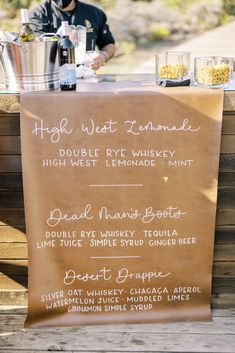 High West Lemonade
DOUBLE RYE WHISKEY
HIGH WEST LEMONADE • MINT
Dead Man's Boots
DOUBLE RYE WHISKEY • TEQUILA
LIME JUICE • SIMPLE SYRUP GINGER BEER
Desert Drappie
SILVER OAT WHISKEY • CHAGAÇA • APEROL
WATERMELON JUICE • MUDDLED LIMES
CINNAMON SIMPLE SYRUP